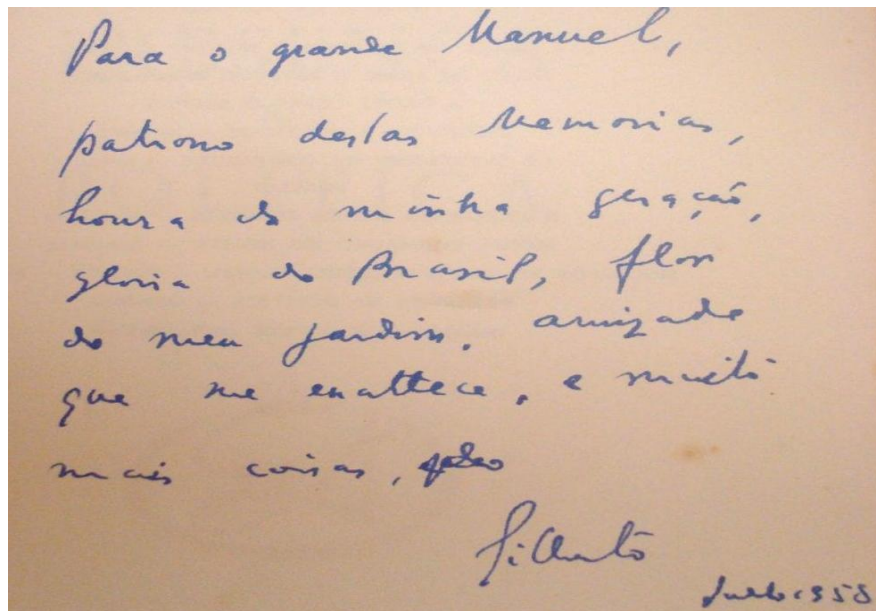 Para o grande Manuel,
patrono destas Memorias,
honra da minha geração,
gloria do Brasil, flor
do meu jardim, amizade
que me enaltece, e muito
mais coisas,
Gilberto
1958